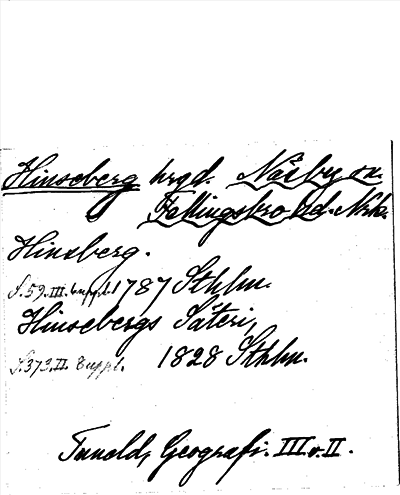 Hinseberg hrgd. Näsby sn.
Fellingsbro hd. Nrk.
Hinsberg.
S. 59. III. suppl. 1787 Sthlm.
Hinsebergs Säteri,
S. 373. II. suppl. 1828 Sthlm.
Tuneld, Geografi. III o. II.